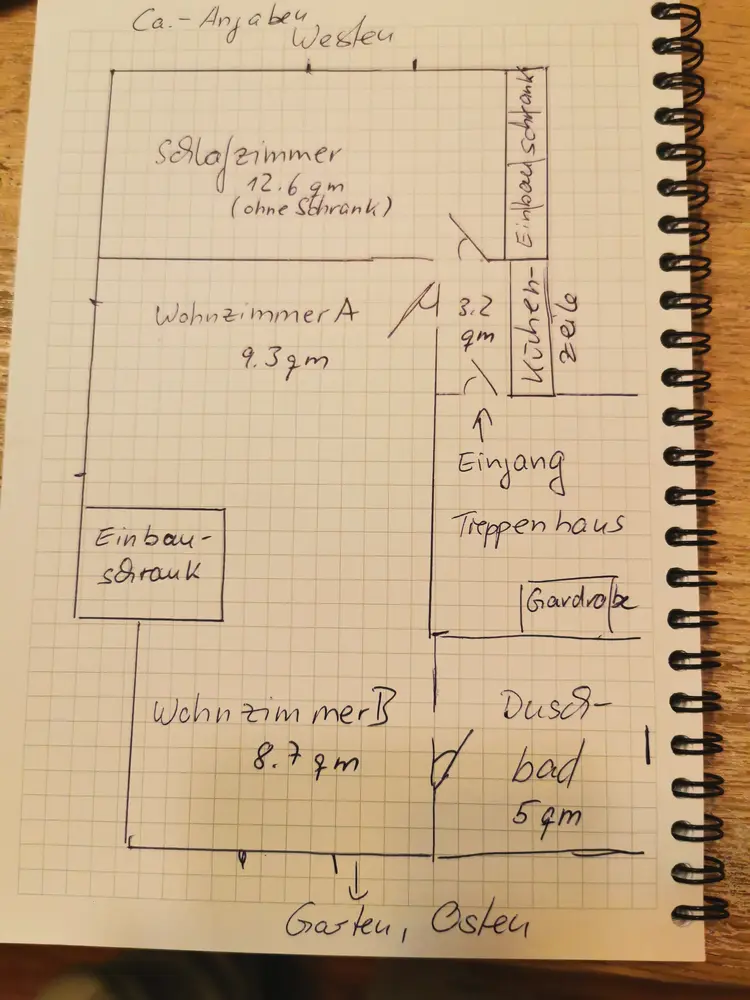 Ca.-Angaben
Westen
Schlafzimmer
12.6 qm
(ohne Schrank)
Einbauschrank
Wohnzimmer A
9.3 qm
3.2
qm
Küchen-
zeile
Eingang
Treppenhaus
Einbau-
schrank
Gardrobe
Wohnzimmer B
8.7 qm
Dusch-
bad
5 qm
Garten, Osten